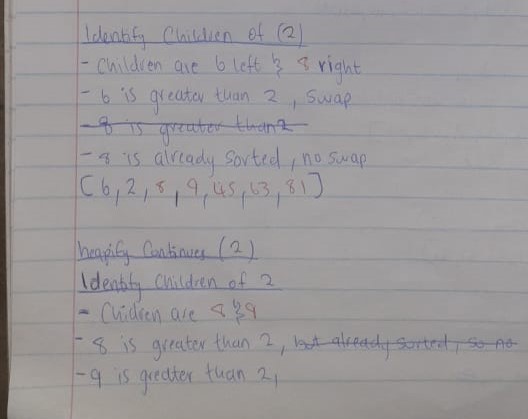 Identify Children of (2)
- Children are 6 left & 8 right
- 6 is greater than 2, swap
- 8 is greater than 2
- 8 is already sorted, no swap
[6, 2, 8, 9, 45, 63, 81]
heapify Continues (2)
Identify Children of 2
- Children are 8 & 9
- 8 is greater than 2, but already sorted, so no
- 9 is greater than 2,